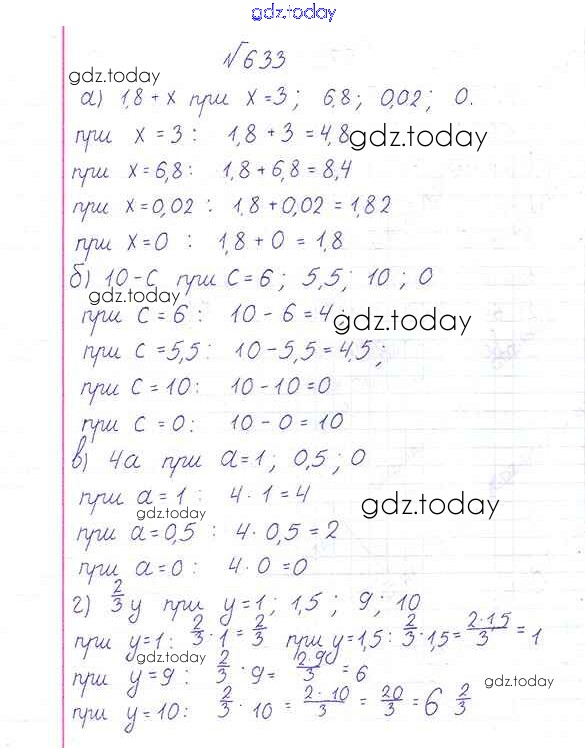 gdz.today
№633
gdz.today
а) 1,8 + x при x = 3; 6,8; 0,02; 0.
при x = 3: 1,8 + 3 = 4,8
gdz.today
при x = 6,8: 1,8 + 6,8 = 8,4
при x = 0,02 : 1,8 + 0,02 = 1,82
при x = 0 : 1,8 + 0 = 1,8
б) 10 - c при c = 6; 5,5; 10; 0
gdz.today
при c = 6: 10 - 6 = 4;
gdz.today
при c = 5,5: 10 - 5,5 = 4,5;
при c = 10: 10 - 10 = 0
при c = 0: 10 - 0 = 10
в) 4a при a = 1; 0,5; 0
при a = 1: 4 · 1 = 4
gdz.today
gdz.today
при a = 0,5 : 4 · 0,5 = 2
при a = 0: 4 · 0 = 0
г) 2/3 y при y = 1; 1,5; 9; 10
при y = 1: 2/3 · 1 = 2/3 при y = 1,5: 2/3 · 1,5 = 2·1,5/3 = 1
gdz.today
при y = 9: 2/3 · 9 = 2·9/3 = 6
gdz.today
при y = 10: 2/3 · 10 = 2·10/3 = 20/3 = 6 2/3